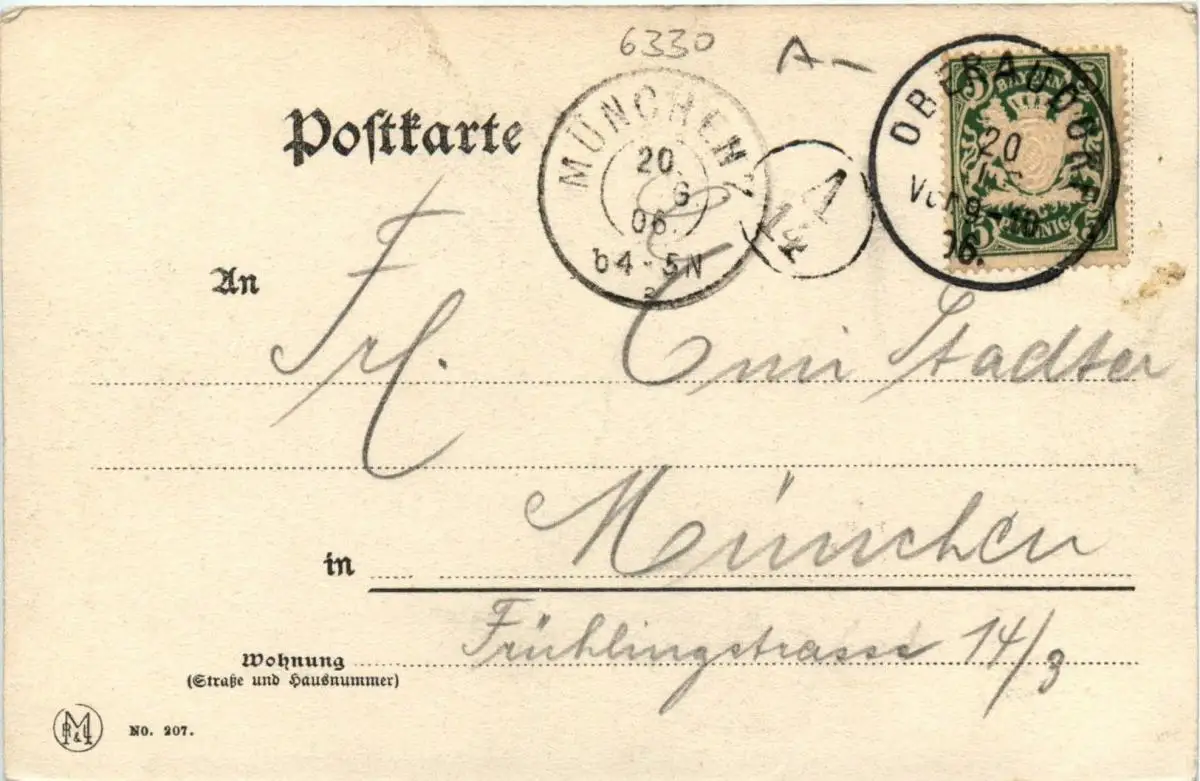 6330 A-
Postkarte
MÜNCHEN 2
20
6
06.
b4-5N
a
OBERAUDORF
20
Vor 9-10
06.
BAYERN
5 5
PFENNIG
An
Frl. Emi Stadter
in München
Wohnung Frühlingstrasse 14/3
(Straße und Hausnummer)
No. 207.